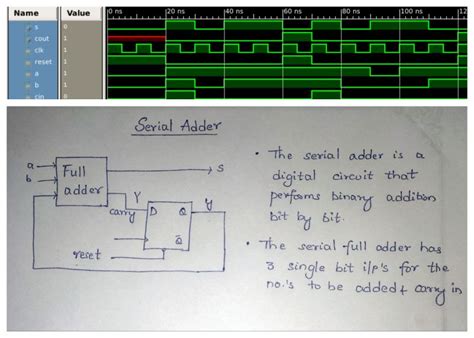 Name Value 0 ns 20 ns 40 ns 60 ns 80 ns 100 ns 12
s 0
cout 1
clk 1
reset 1
a 1
b 1
cin
Serial Adder
a
b
Full
adder
S
Y
carry
D Q y
Q̅
reset
• The serial adder is a
digital circuit that
performs binary addition
bit by bit.
• The serial full adder has
3 single bit i/p's for the
no.'s to be added & carry in